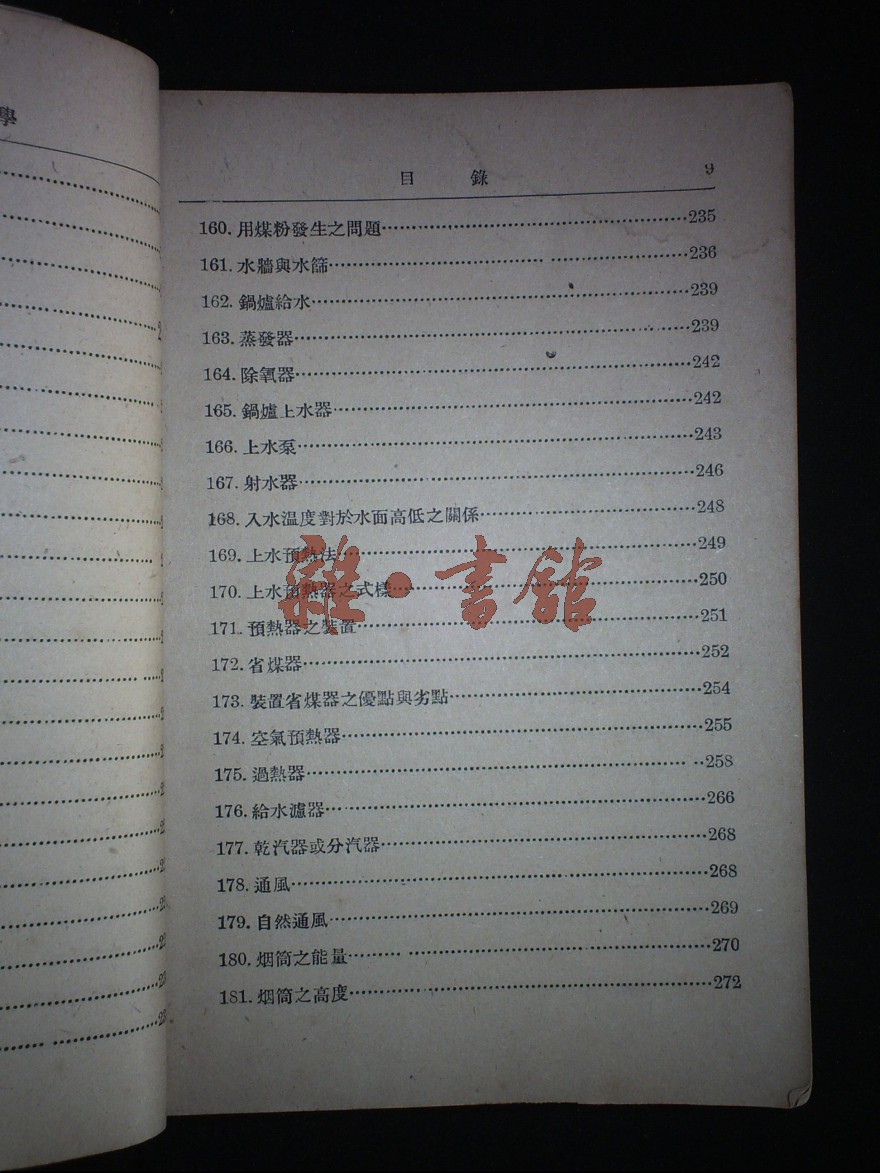 學
目 錄 9
160. 用煤粉發生之問題 235
161. 水牆與水篩 236
162. 鍋爐給水 239
163. 蒸發器 239
164. 除氧器 242
165. 鍋爐上水器 242
166. 上水泵 243
167. 射水器 246
168. 入水温度對於水面高低之關係 248
169. 上水預熱法 249
170. 上水預熱器之式樣 250
171. 預熱器之裝置 251
172. 省煤器 252
173. 裝置省煤器之優點與劣點 254
174. 空氣預熱器 255
175. 過熱器 258
176. 給水濾器 266
177. 乾汽器或分汽器 268
178. 通風 268
179. 自然通風 269
180. 烟筒之能量 270
181. 烟筒之高度 272
雜·書館